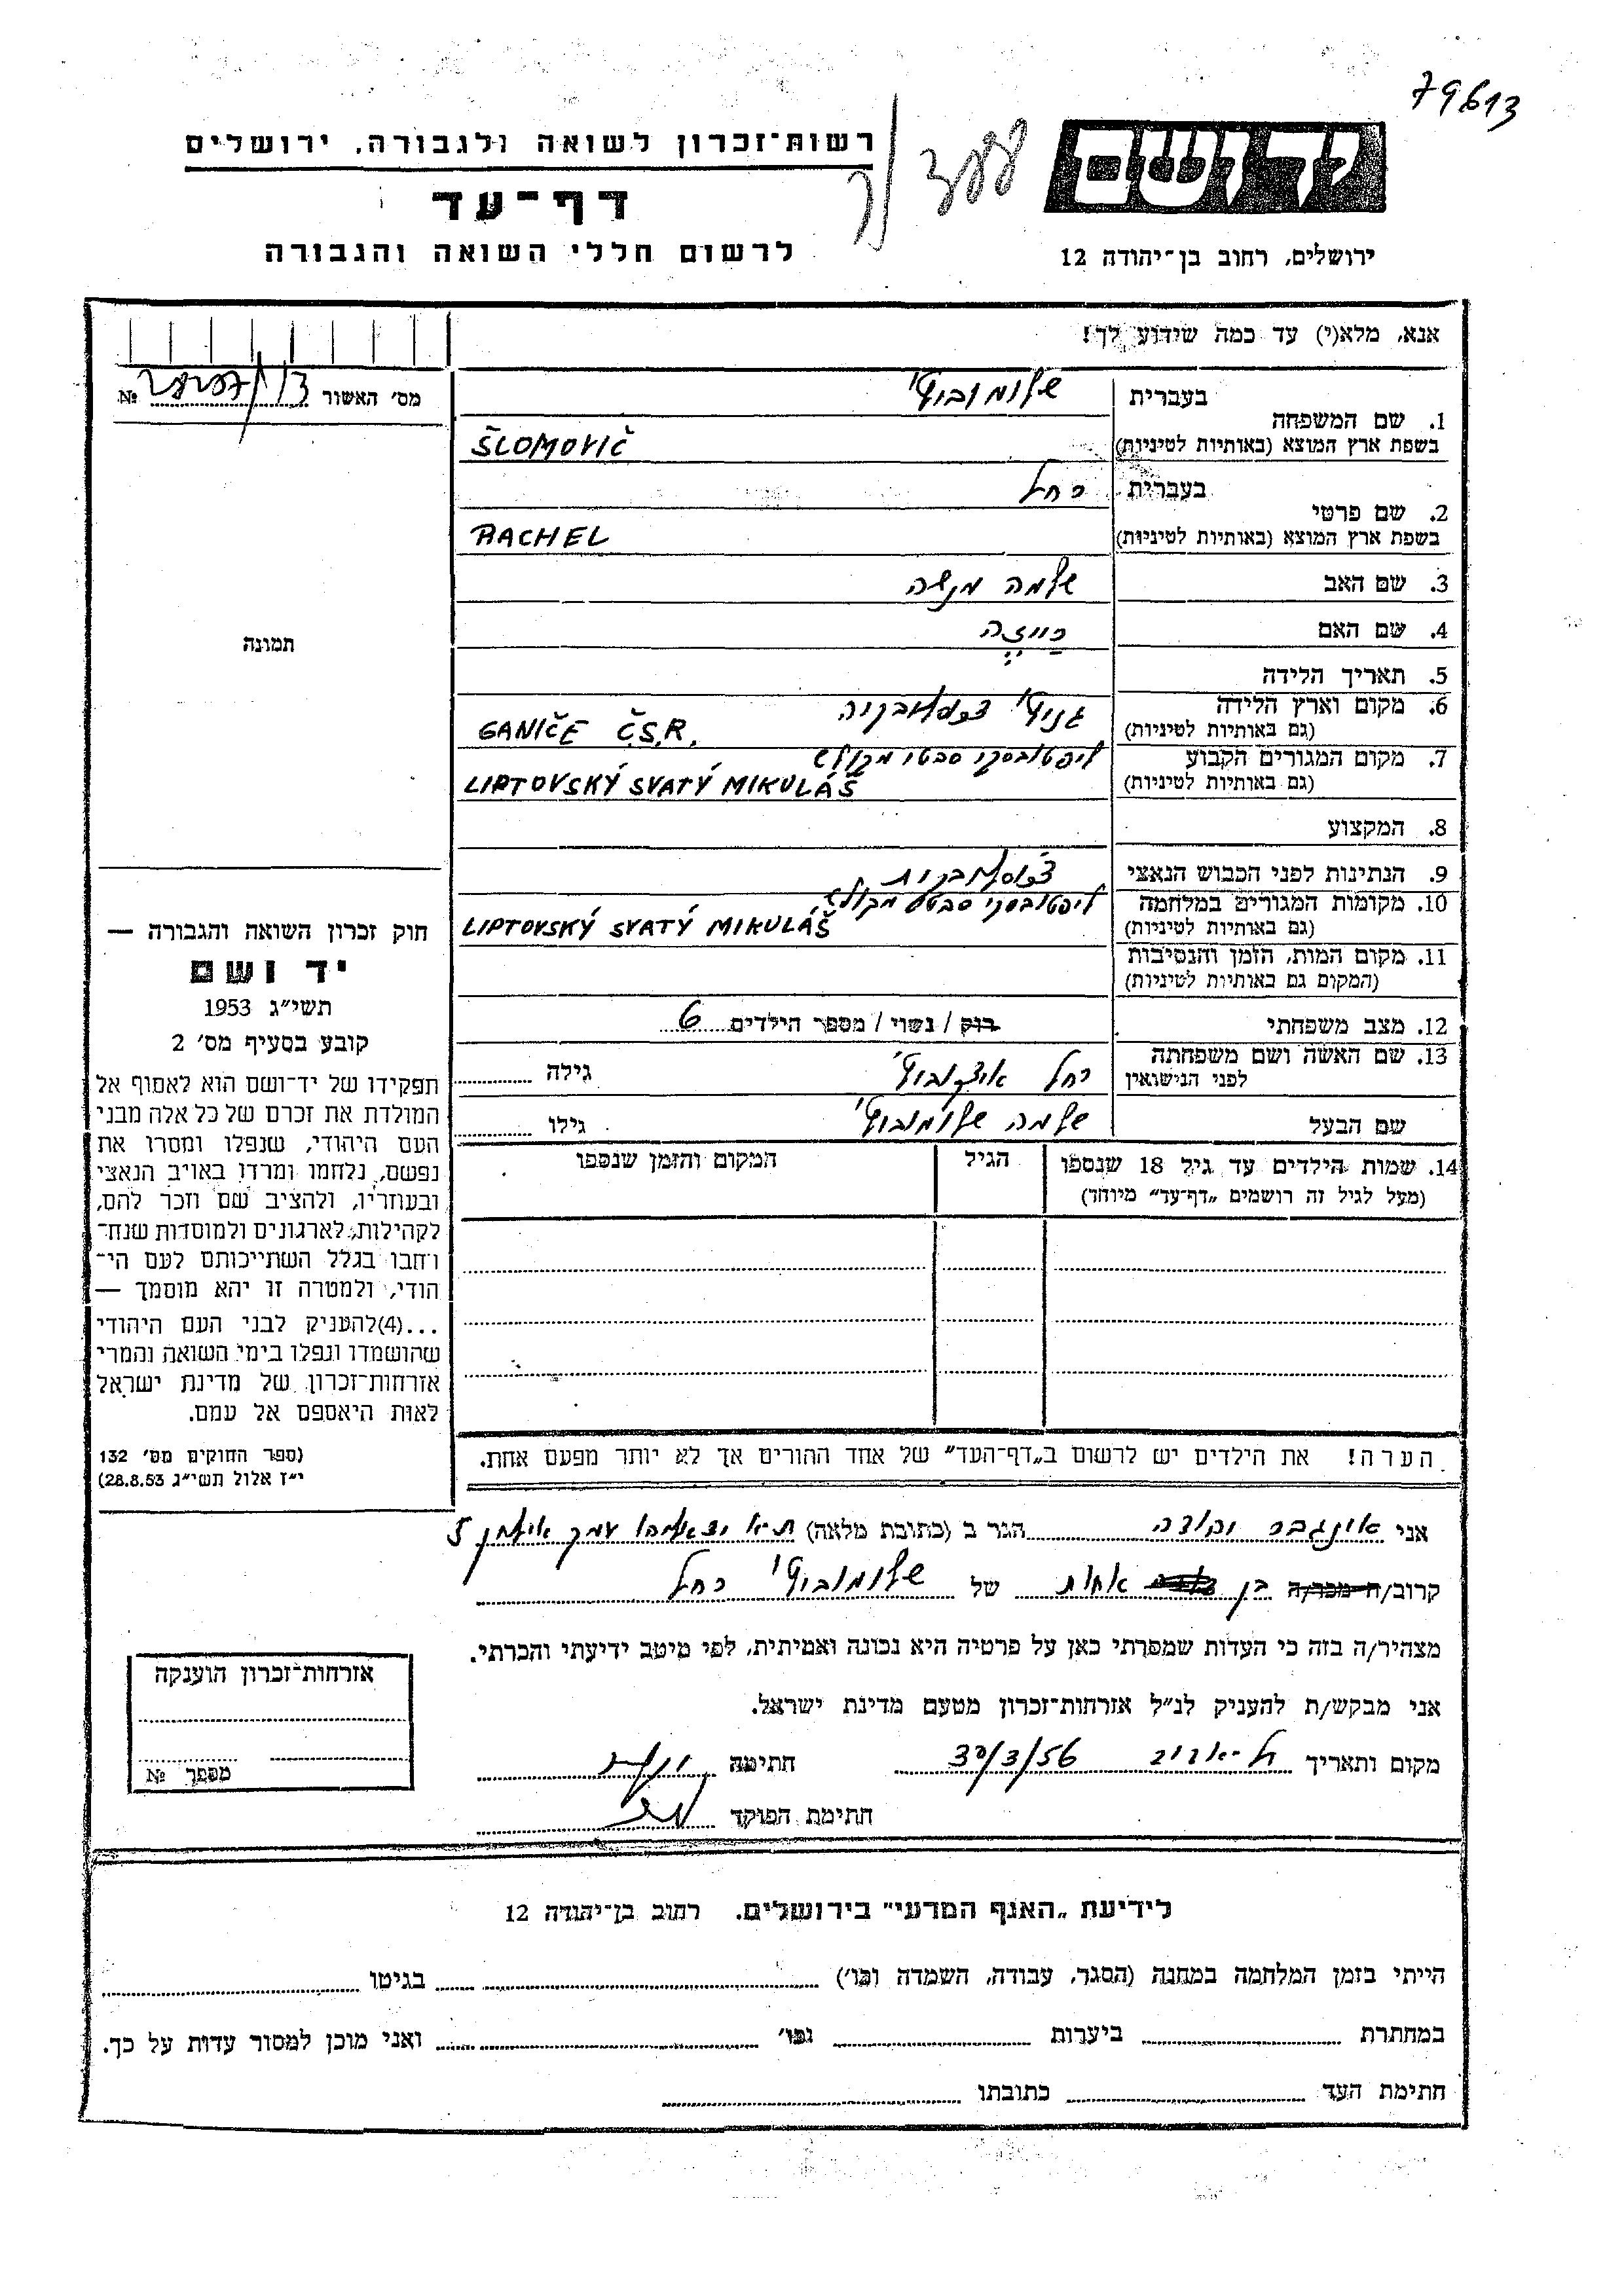 79613
יד ושם
רשות־זכרון לשואה ולגבורה, ירושלים
דף־עד
לרשום חללי השואה והגבורה
ירושלים, רחוב בן־יהודה 12
אנא, מלא(י) עד כמה שידוע לך!
מס׳ האשור №
1. שם המשפחה
בעברית שלומוביץ׳
בשפת ארץ המוצא (באותיות לטיניות) ŠLOMOVIČ
2. שם פרטי
בעברית רחל
בשפת ארץ המוצא (באותיות לטיניות) RACHEL
3. שם האב שלמה מנשה
4. שם האם
5. תאריך הלידה
6. מקום וארץ הלידה גניץ׳ צ׳כוסלובקיה
(גם באותיות לטיניות) GANIČE Č.S.R.
7. מקום המגורים הקבוע ליפטובסקי סבטי מיקולש
(גם באותיות לטיניות) LIPTOVSKÝ SVATÝ MIKULÁŠ
8. המקצוע
9. הנתינות לפני הכבוש הנאצי צ׳כוסלובקית
10. מקומות המגורים במלחמה ליפטובסקי סבטי מיקולש
(גם באותיות לטיניות) LIPTOVSKÝ SVATÝ MIKULÁŠ
11. מקום המות, הזמן והנסיבות
(המקום גם באותיות לטיניות)
12. מצב משפחתי רוק / נשוי / מספר הילדים 6
13. שם האשה ושם משפחתה
לפני הנישואין רחל איצקוביץ׳ גילה
שם הבעל שלמה שלומוביץ׳ גילו
14. שמות הילדים עד גיל 18 שנספו
(מעל לגיל זה רושמים „דף־עד” מיוחד)
הגיל
המקום והזמן שנספו
הערה! את הילדים יש לרשום ב„דף־העד” של אחד ההורים אך לא יותר מפעם אחת.
תמונה
חוק זכרון השואה והגבורה —
יד ושם
תשי״ג 1953
קובע בסעיף מס׳ 2
תפקידו של יד־ושם הוא לאסוף אל
המולדת את זכרם של כל אלה מבני
העם היהודי, שנפלו ומסרו את
נפשם, נלחמו ומרדו באויב הנאצי
ובעוזריו, ולהציב שם וזכר להם,
לקהילות, לארגונים ולמוסדות שנח־
רחבו בגלל השתייכותם לעם הי־
הודי, ולמטרה זו יהא מוסמך —
...(4)להעניק לבני העם היהודי
שהושמדו ונפלו בימי השואה והמרי
אזרחות־זכרון של מדינת ישראל
לאות היאספם אל עמם.
(ספר החוקים מס׳ 132
י״ז אלול תשי״ג 28.8.53)
אני אינגבר יהודה הגר ב (כתובת מלאה) ת־א
קרוב/ה מכר/ה בן אחות של שלומוביץ׳ רחל
מצהיר/ה בזה כי העדות שמסרתי כאן על פרטיה היא נכונה ואמיתית, לפי מיטב ידיעתי והכרתי.
אני מבקש/ת להעניק לנ״ל אזרחות־זכרון מטעם מדינת ישראל.
מקום ותאריך תל־אביב 30/3/56 חתימה
חתימת הפוקד
אזרחות־זכרון הוענקה
מספר №
לידיעת „האגף המדעי” בירושלים. רחוב בן־יהודה 12
הייתי בזמן המלחמה במחנה (הסגר, עבודה, השמדה וכו׳) בגיטו
במחתרת ביערות וכו׳ ואני מוכן למסור עדות על כך.
חתימת העד כתובתו